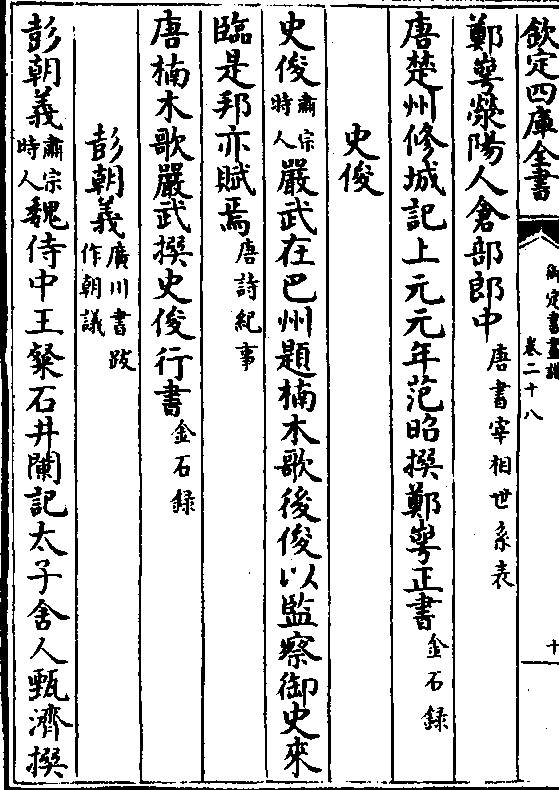 欽定四庫全書
御定書畫譜
卷二十八
十
鄭㝱滎陽人倉部郎中唐書宰相世系表
唐楚州修城記上元元年范昭撰鄭㝱正書金石録
史俊
史俊肅宗時人嚴武在巴州題楠木歌後俊以監察御史來
臨是邦亦賦焉唐詩紀事
唐楠木歌嚴武撰史俊行書金石録
彭朝義廣川書跋作朝議
彭朝義肅宗時人魏侍中王粲石井闌記太子舍人甄濟撰